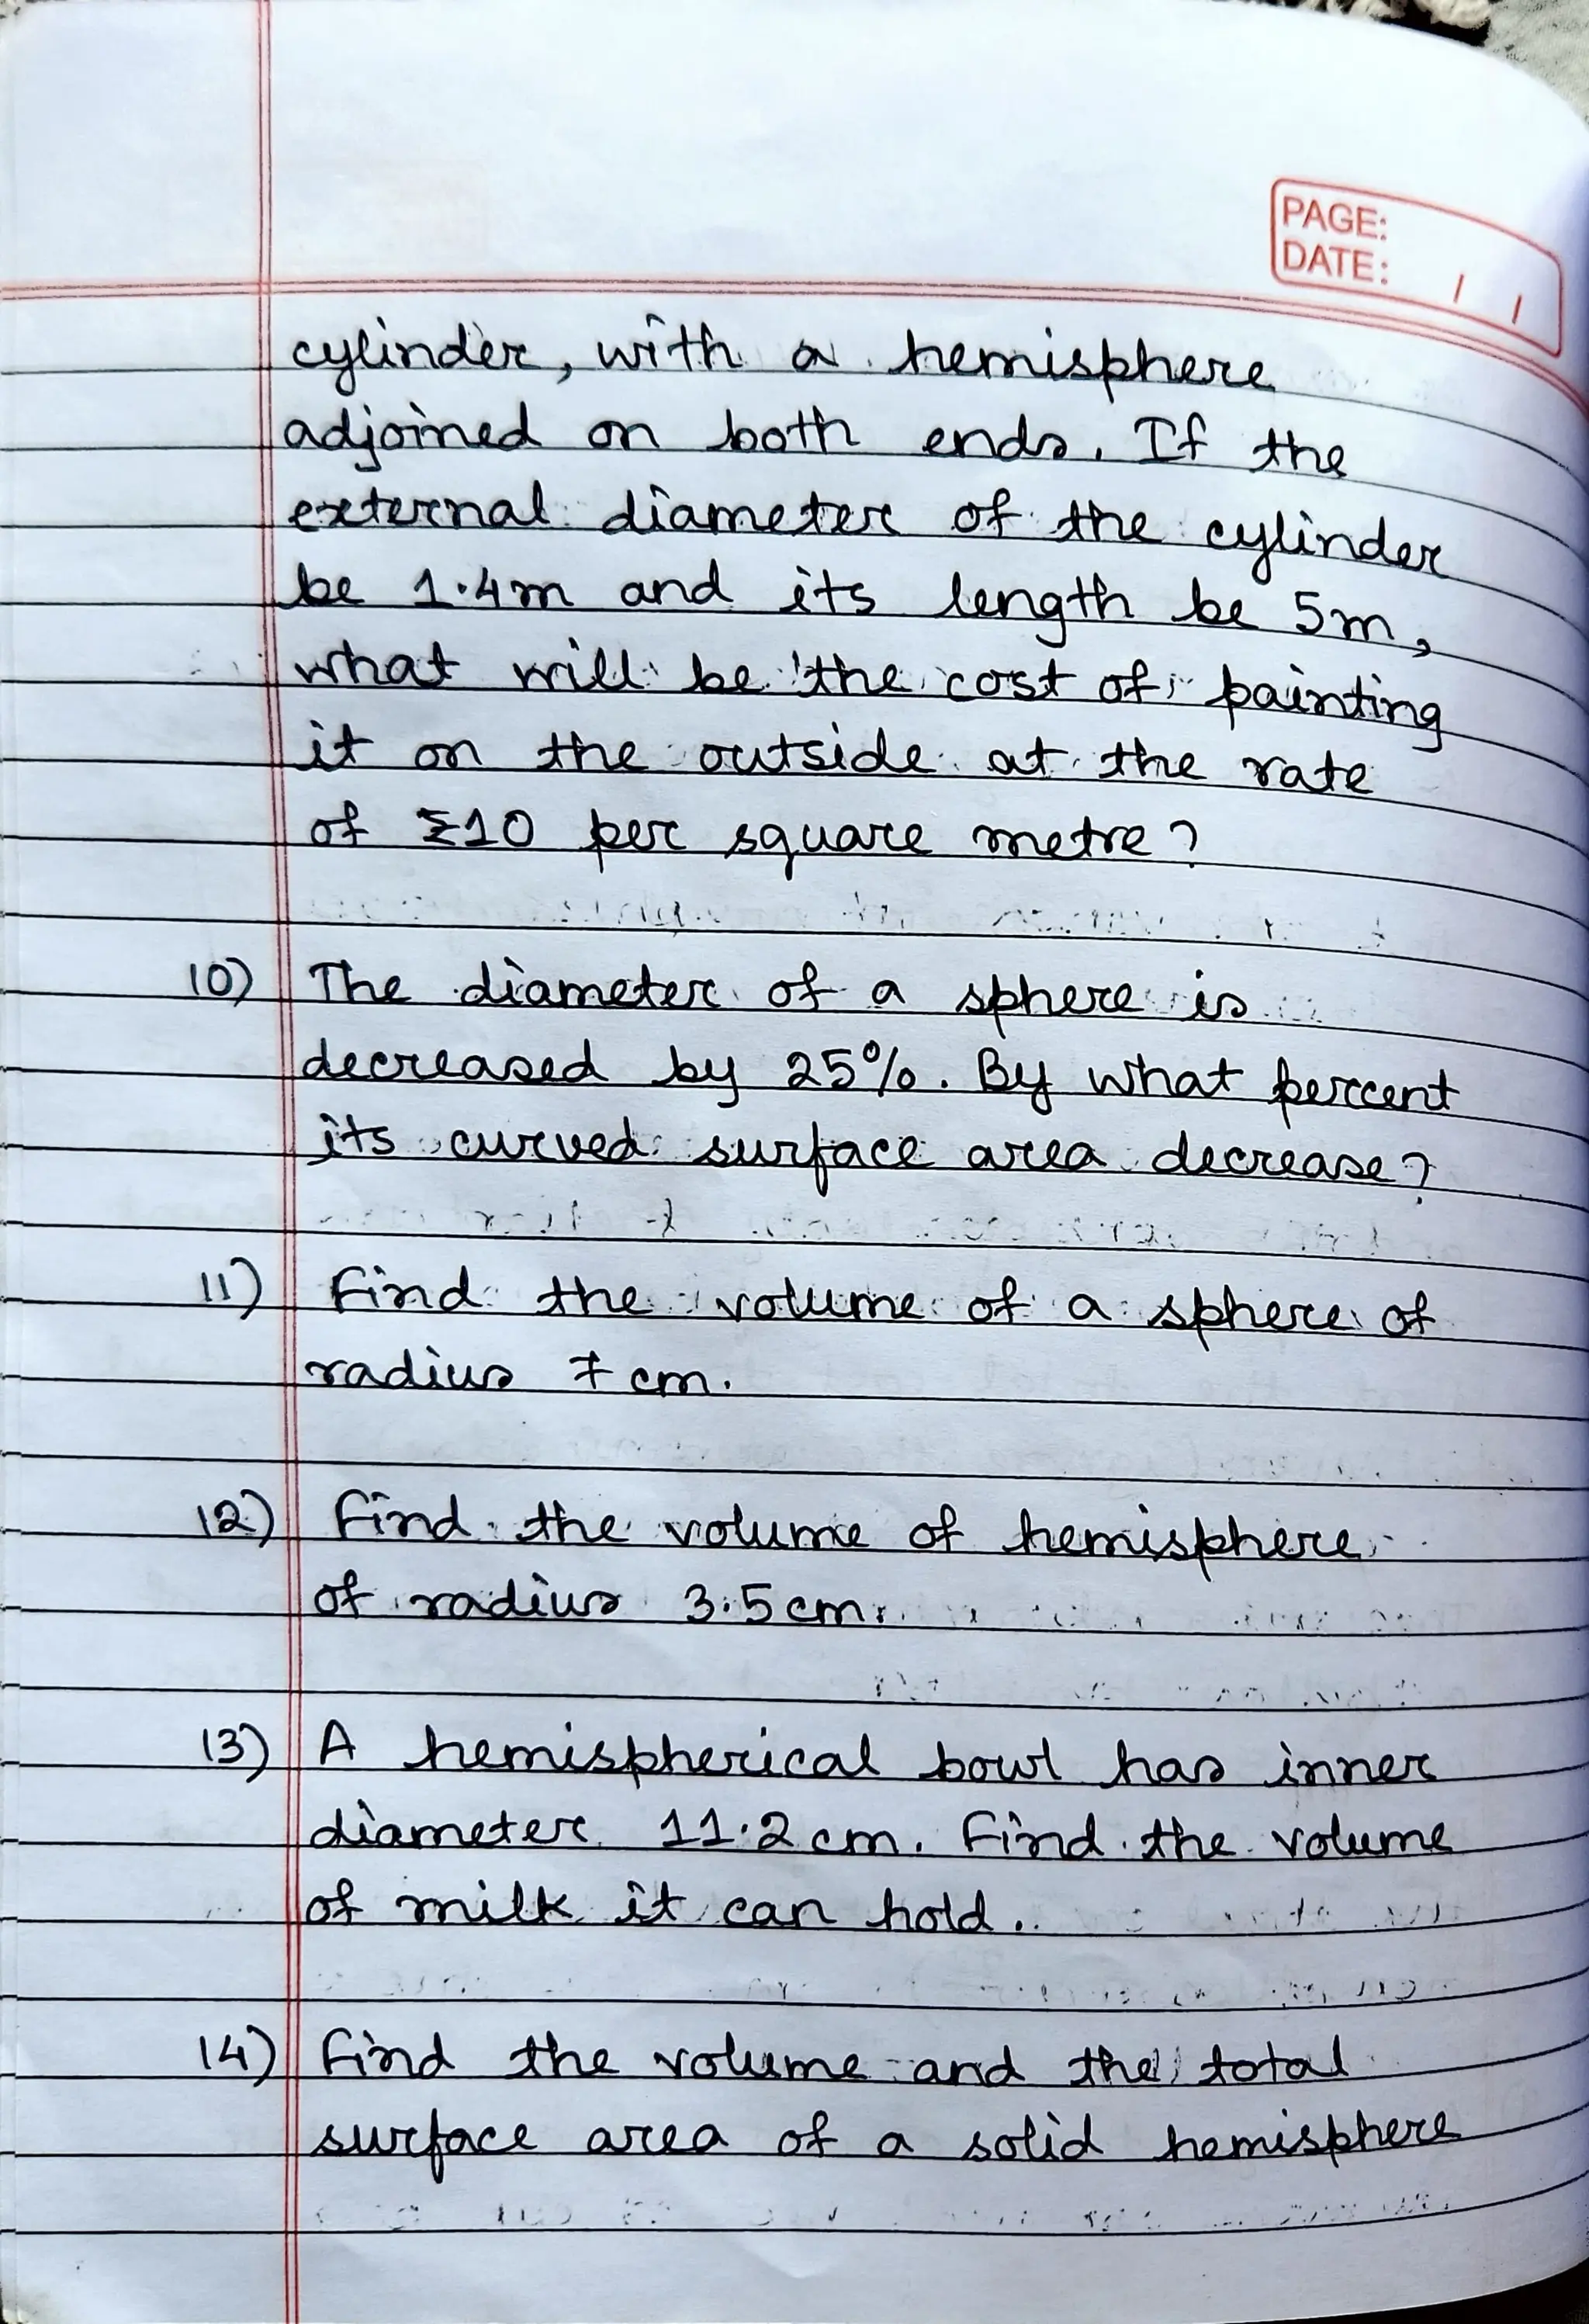 PAGE:
DATE: / /
cylinder, with a hemisphere
adjoined on both ends. If the
external diameter of the cylinder
be 1.4m and its length be 5m,
what will be the cost of painting
it on the outside at the rate
of ₹10 per square metre?
10) The diameter of a sphere is
decreased by 25%. By what percent
its curved surface area decrease?
11) Find the volume of a sphere of
radius 7 cm.
12) Find the volume of hemisphere
of radius 3.5 cm.
13) A hemispherical bowl has inner
diameter 11.2 cm. Find the volume
of milk it can hold.
14) Find the volume and the total
surface area of a solid hemisphere